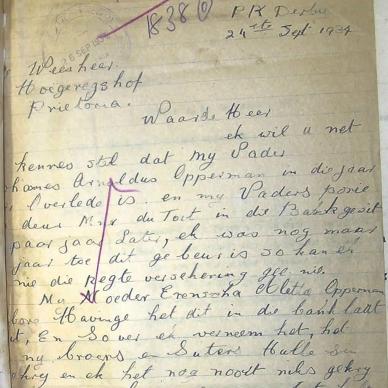 1838
P.K. Derby
24ste Sept 1934
26 SEP
Weesheer.
Hoegeregshof
Prietoria.
Waarde Heer
ek wil u net
kennes stel dat my Vader
Arnoldus Opperman in die jaar
Overlede is en my Vaders porsie
deur Mnr du Toit in die Bank gesit
paar jaar Later, ek was nog maar
jaar toe dit gebeur is so kan ek
nie die Regte versekering gee nie.
My Moeder Opperman
Havinge het dit in die bank laat
En So ver ek verneem het, het
my broers en Susters Hulle
en ek het nog nooit niks gekry